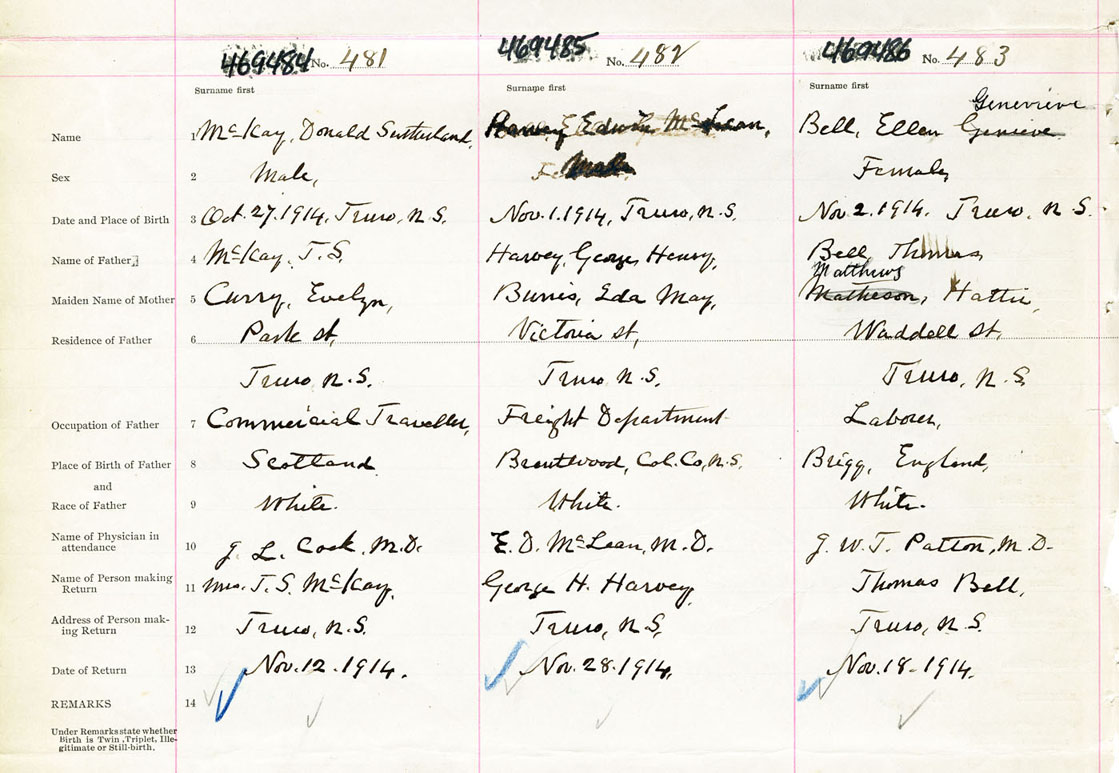 469484 No. 481 469485 No. 482 469486 No. 483
Surname first Surname first Surname first
Genevieve
Name 1 McKay, Donald Sutherland, Harvey, E Edwin McLean, Bell, Ellen Genieve
Sex 2 Male, Male Female,
Date and Place of Birth 3 Oct. 27. 1914, Truro, N.S. Nov. 1. 1914, Truro, N.S. Nov 2. 1914. Truro, N S.
Name of Father 4 McKay, T. S. Harvey, George Henry, Bell, Thomas
Matthews
Maiden Name of Mother 5 Curry, Evelyn, Burris, Eda May, Matheson, Hattie,
Residence of Father 6 Park st, Victoria st, Waddell St,
Truro, N.S. Truro, N.S. Truro, N.S.
Occupation of Father 7 Commercial Traveller, Freight Department Laborer,
Place of Birth of Father 8 Scotland Brentwood, Col. Co, N.S. Brigg, England,
and
Race of Father 9 White. White. White.
Name of Physician in
attendance 10 J. L. Cock, M.D. E. D. McLean, M.D. J. W. T. Patton, M.D.
Name of Person making
Return 11 Mrs. T. S. McKay, George H. Harvey, Thomas Bell,
Address of Person mak-
ing Return 12 Truro, N.S. Truro, N.S, Truro, N.S.
Date of Return 13 Nov. 12. 1914. Nov. 28. 1914, Nov. 18-1914.
REMARKS 14
Under Remarks state whether
Birth is Twin, Triplet, Ille-
gitimate or Still-birth.